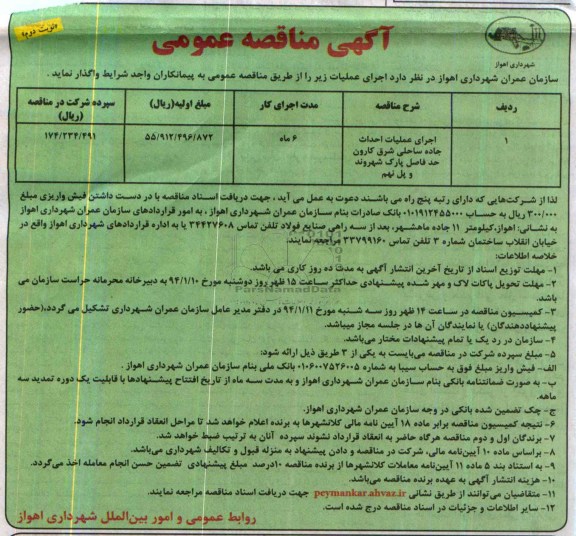 آگهی مناقصه عمومی
«نوبت دوم»
شهرداری اهواز
سازمان عمران شهرداری اهواز در نظر دارد اجرای عملیات زیر را از طریق مناقصه عمومی به پیمانکاران واجد شرایط واگذار نماید .
ردیف شرح مناقصه مدت اجرای کار مبلغ اولیه(ریال) سپرده شرکت در مناقصه (ریال)
۱ اجرای عملیات احداث ۶ ماه ۵۵/۹۱۲/۴۹۶/۸۷۲ ۱۷۴/۲۳۴/۴۹۱
جاده ساحلی شرق کارون
حد فاصل پارک شهروند
و پل نهم
لذا از شرکت‌هایی که دارای رتبه پنج راه می باشند دعوت به عمل می آید ، جهت دریافت اسناد مناقصه با در دست داشتن فیش واریزی مبلغ
۳۰۰/۰۰۰ ریال به حساب ۰۱۰۱۹۱۲۴۵۵۰۰۰ بانک صادرات بنام سازمان عمران شهرداری اهواز ، به امور قراردادهای سازمان عمران شهرداری اهواز
به نشانی: اهواز،کیلومتر ۱۱ جاده ماهشهر، بعد از سه راهی صنایع فولاد تلفن تماس ۳۴۴۲۷۶۰۸ یا به اداره قراردادهای شهرداری اهواز واقع در
خیابان انقلاب ساختمان شماره ۳ تلفن تماس ۳۳۷۹۹۱۶۰ مراجعه نمایند.
خلاصه اطلاعات:
۱- مهلت توزیع اسناد از تاریخ آخرین انتشار آگهی به مدت ده روز کاری می باشد.
۲- مهلت تحویل پاکات لاک و مهر شده پیشنهادی حداکثر ساعت ۱۵ ظهر روز دوشنبه مورخ ۹۴/۱/۱۰ به دبیرخانه محرمانه حراست سازمان می
باشد.
۳- کمیسیون مناقصه در ساعت ۱۴ ظهر روز سه شنبه مورخ ۹۴/۱/۱۱ در دفتر مدیر عامل سازمان عمران شهرداری تشکیل می گردد.(حضور
پیشنهاددهندگان) یا نمایندگان آن ها در جلسه مجاز میباشد.
۴- سازمان در رد یک یا تمام پیشنهادات مختار می‌باشد.
۵- مبلغ سپرده شرکت در مناقصه می‌بایست به یکی از ۳ طریق ذیل ارائه شود:
الف- فیش واریز مبلغ فوق به حساب سیبا به شماره ۰۱۰۶۰۰۷۵۲۶۰۰۵ بانک ملی بنام سازمان عمران شهرداری اهواز .
ب- به صورت ضمانتنامه بانکی بنام سازمان عمران شهرداری اهواز و به مدت سه ماه از تاریخ افتتاح پیشنهادها با قابلیت یک دوره تمدید سه
ماهه.
ج- چک تضمین شده بانکی در وجه سازمان عمران شهرداری اهواز.
۶- نتیجه کمیسیون مناقصه برابر ماده ۱۸ آیین نامه مالی کلانشهرها به برنده اعلام خواهد شد تا مراحل انعقاد قرارداد انجام شود.
۷- برندگان اول و دوم مناقصه هرگاه حاضر به انعقاد قرارداد نشوند سپرده آنان به ترتیب ضبط خواهد شد.
۸- براساس ماده ۱۰ آیین‌نامه مالی، شرکت در مناقصه و دادن پیشنهاد به منزله قبول و تکالیف شهرداری می‌باشد.
۹- به استناد بند ۵ ماده ۱۱ آیین‌نامه معاملات کلانشهرها از برنده مناقصه ۱۰درصد مبلغ پیشنهادی تضمین حسن انجام معامله اخذ می‌گردد.
۱۰- هزینه انتشار آگهی به عهده برنده مناقصه می‌باشد.
۱۱- متقاضیان می‌توانند از طریق نشانی peymankar.ahvaz.ir جهت دریافت اسناد مناقصه مراجعه نمایند.
۱۲- سایر اطلاعات و جزئیات در اسناد مناقصه درج شده است.
روابط عمومی و امور بین‌الملل شهرداری اهواز
ParsNamadData